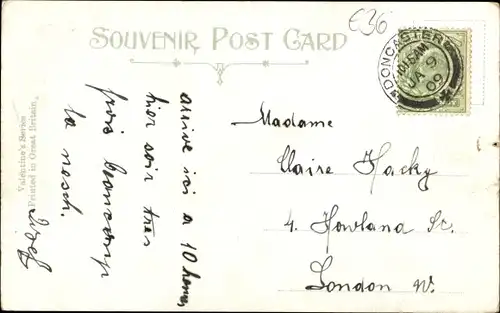 €36
SOUVENIR POST CARD
DONCASTER
1015AM
JA 9
09
Valentine's Series
Printed in Great Britain.
arrive ici a 10 heures
hier soir tres
froid beaucoup
la
Madame
Claire Hacky
4. Howland St.
London W.